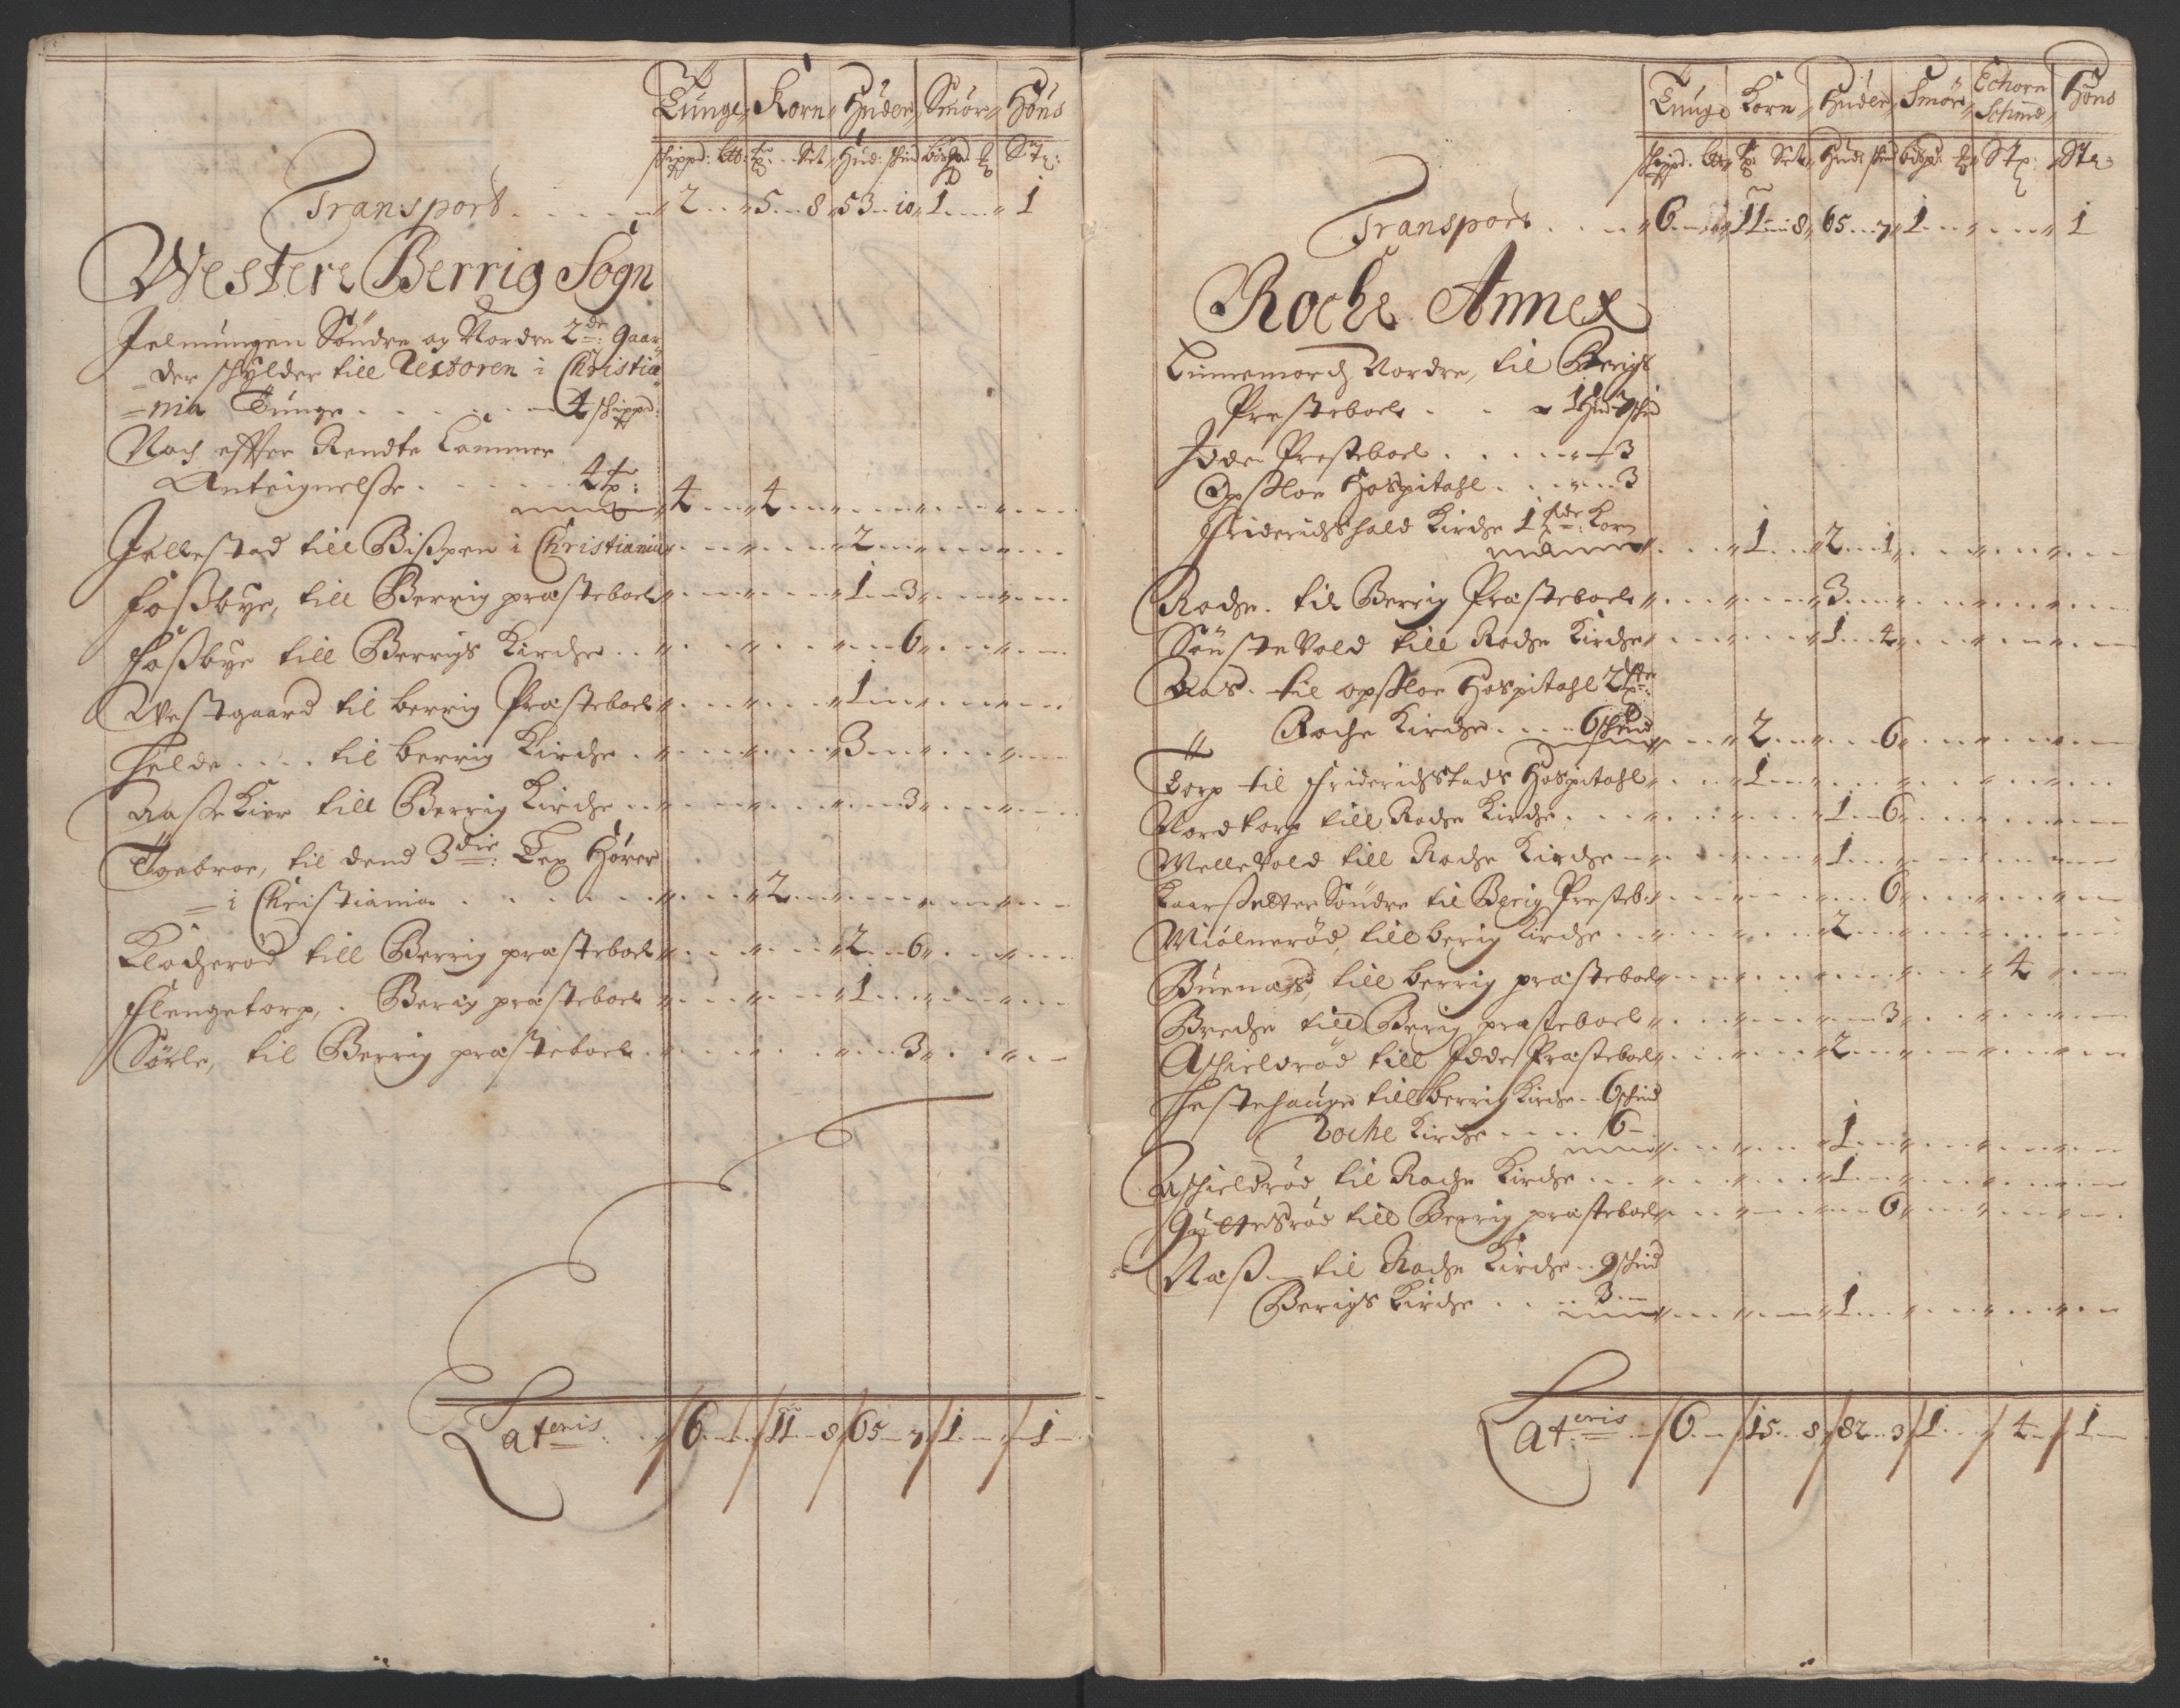 Tunge Korn Huder Smör Höns
schippd: lb: tr: Set Hud: schind bdspd: Stz:
Transport 2 5 8 53 10 1 1
Westere Berrig Sogn
Jelmungen Söndre og Nordre 2de gaar
der schylder till Lectoren i Christia
nia Tunge 4 schippd:
Noch effter Rendte Cammer
Anteignelsse 4 tr: 4 4
Jellestad till Bispen i Christiania 2
Fossbye, till Berrig præsteboel 1 3
Fossbye till Berrigs Kirche 6
Westgaard til berrig Præsteboel 1
Helde til berrig Kirche 3
Aasse Kier till Berrig Kirche 3
Töebroe, til dend 3die: Lex Hörer
i Christiania 2
Klocheröd till Berrig præsteboel 2 6
Flengetorp, Berrig præsteboel 1
Sörle, til Berrig præsteboel 3
Lateris 6 11 8 65 7 1 1
Tunge Korn Huder Smör Echorn Höns
Schind
schippd. tr: Sett Hud: schind bdspd: Stz: Stz:
Transport 6 11 8 65 7 1 1
Roche Annex
Linnemarch Nordre, til Berigs
Presteboel 1 Hud 7 schind
Idde Presteboel 3
Opsloe Hospitahl 3
Friderichshald Kirche 1 Korn
1 2 1
Roche til Berrig Præsteboel 3
Söndre Vold till Roche Kirche 1 4
Aas til opsloe Hospitahl 2
Roche Kirche 6 schind 2 6
Torp til Friderichstads Hospitahl 1
Nordtorp till Roche Kirche 1 6
Melle Vold till Roche Kirche 1
Kaersætter Söndre til Berig Presteb: 6
Miölneröd till berig Kirche 2
Buenæs, till berrig præsteboel 4
Breche till Berig præsteboel 3
Aschieldröd till Idde Præsteboel 2
Hestehauge till berrig Kirche 6 schind
Roche Kirche 6
1
Aschieldröd til Roche Kirche 1
Gyltesröd till Berrig præsteboel 6
Næss til Roche Kirche 9 schind
Berigs Kirche 3 1
Lateris 6 15 8 82 3 1 4 1